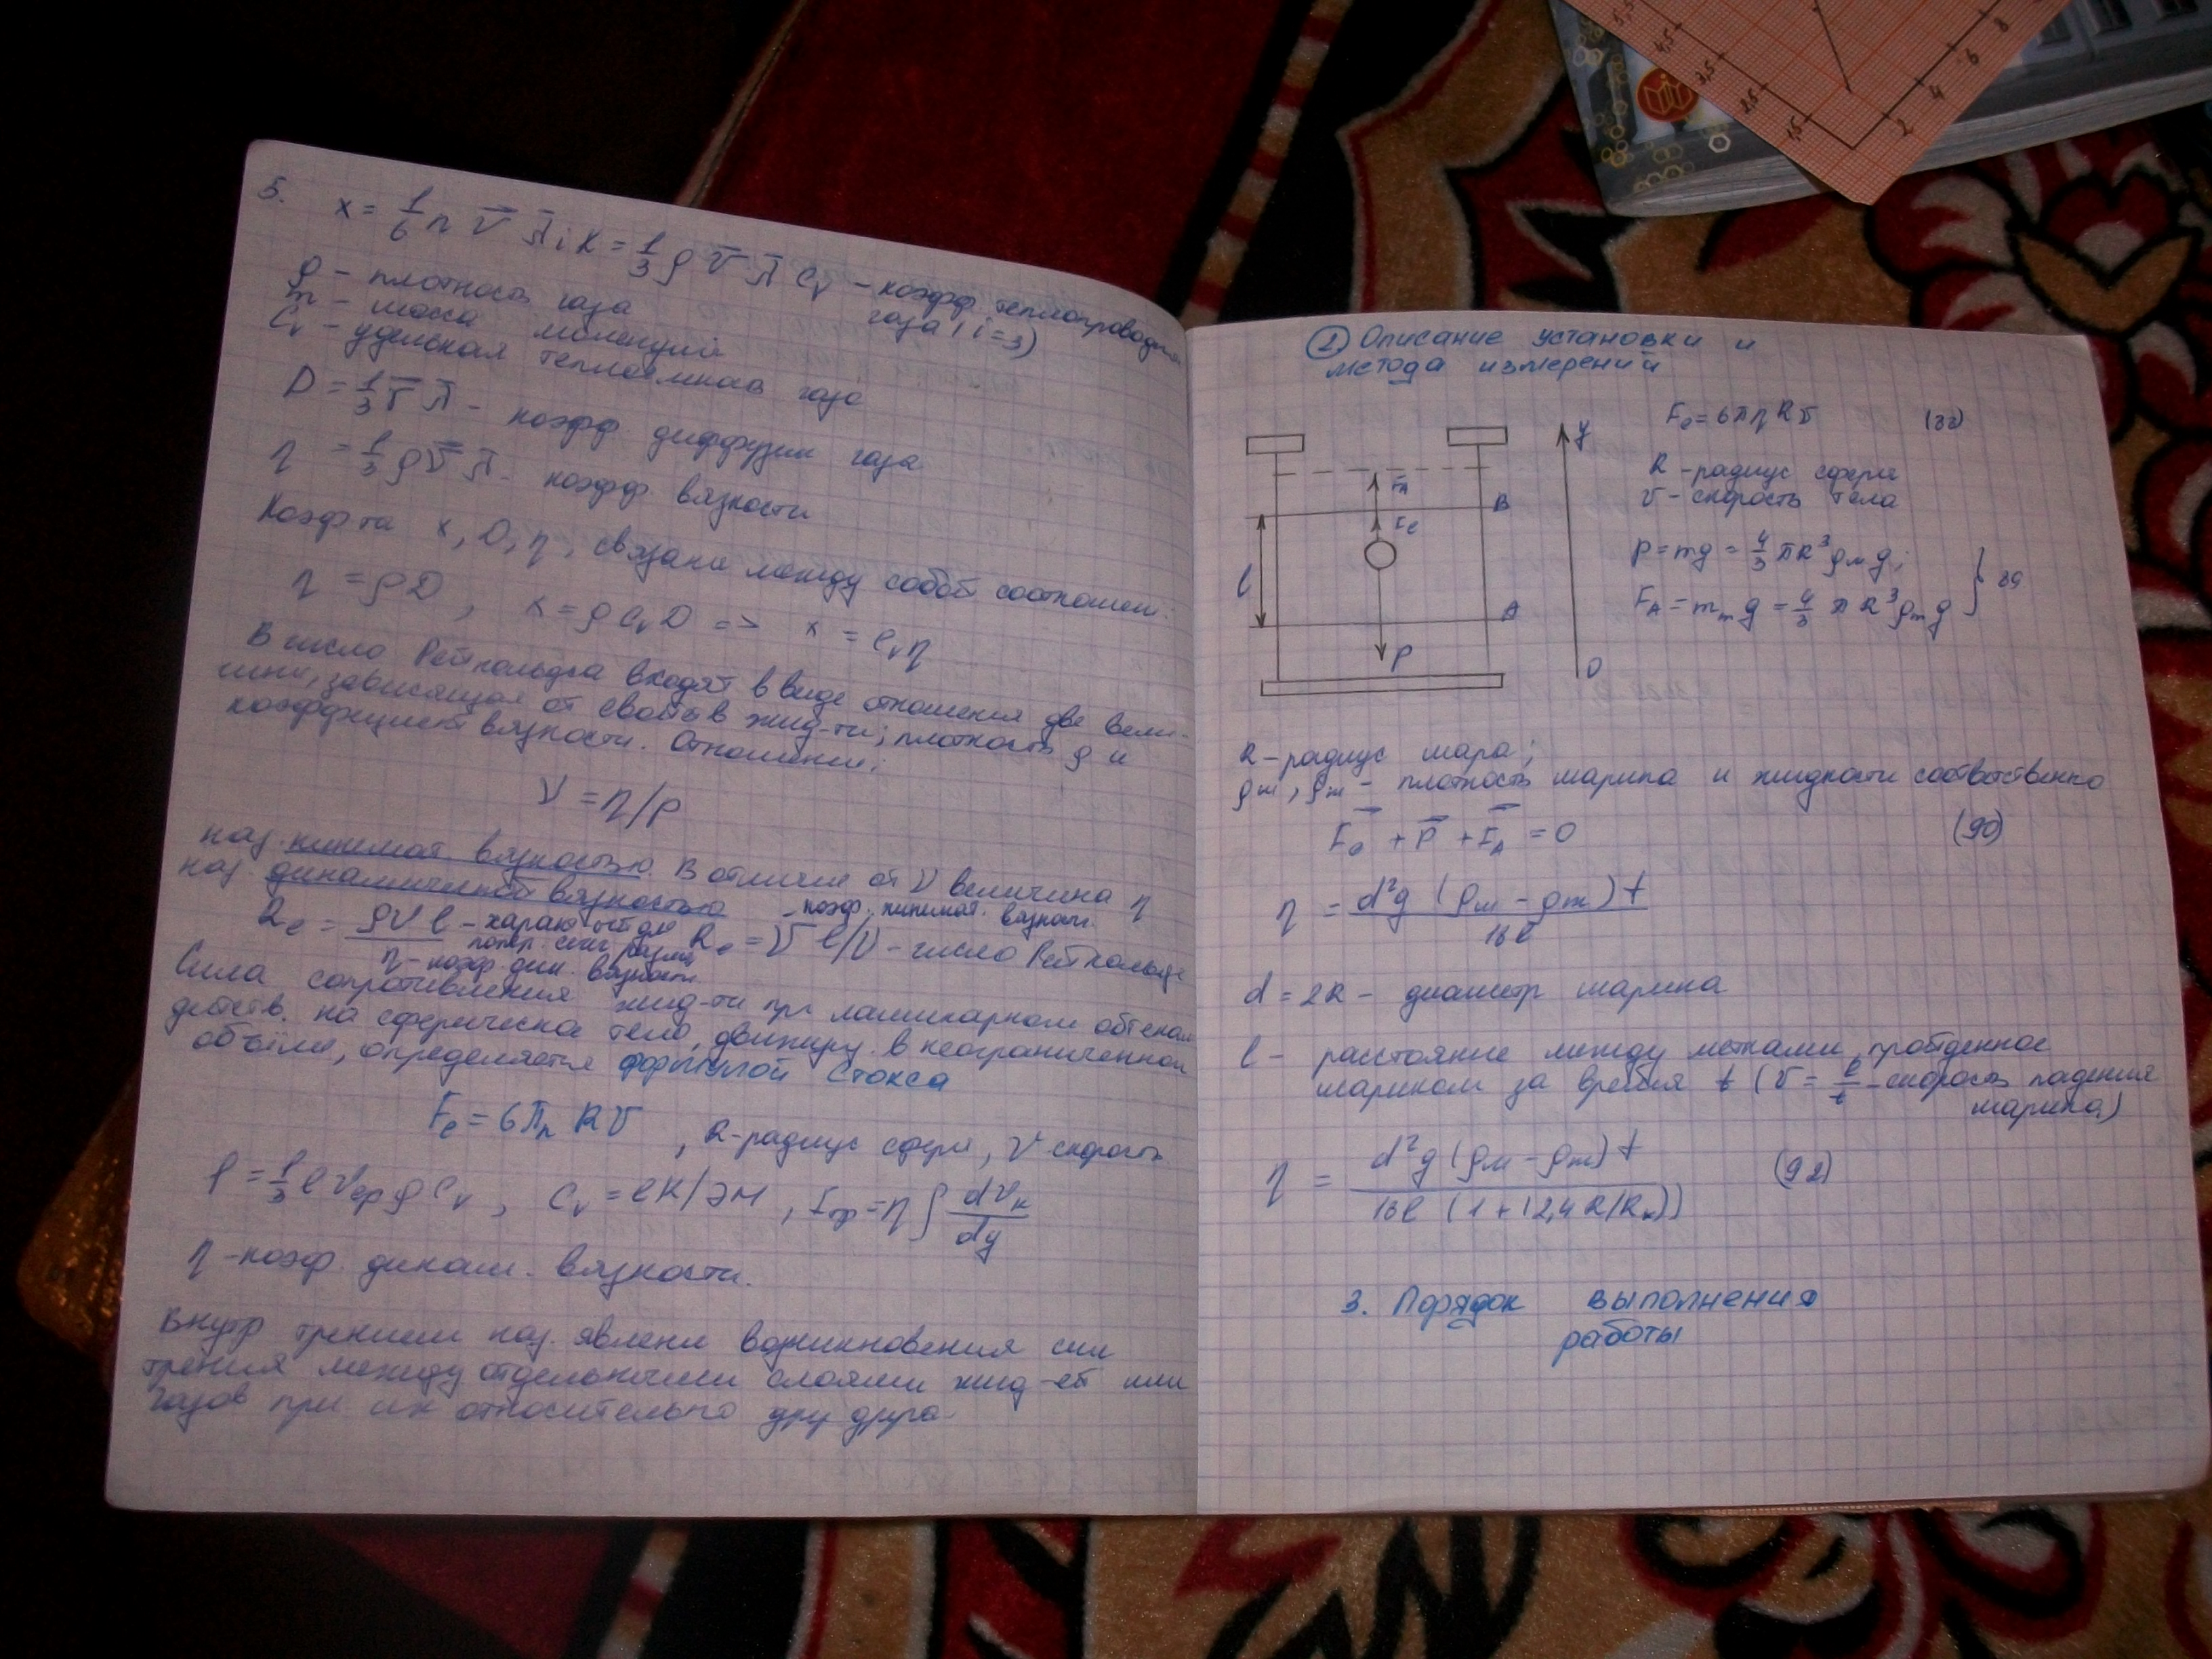 5.
x = 1/6 n v̄ λ̄ i k = 1/3 ρ v̄ λ̄ Cv – коэфф. теплопроводн
газа, i=3)
ρ – плотность газа
m – масса молекулы
Cv – удельная теплоёмкость газа
D = 1/3 v̄ λ̄ – коэфф. диффузии газа
η = 1/3 ρ v̄ λ̄ – коэфф. вязкости
Коэф-та x, D, η, связаны между собой соотношен:
η = ρD, x = ρ Cv D => x = Cv η
В число Рейнольдса входят в виде отношения две вели-
чины, зависящая от свойств жид-ти; плотность ρ и
коэффициент вязкости. Отношение:
ν = η/ρ
наз. кинемат вязкостью. В отличие от ν величина η
наз. динамической вязкостью
Re = ρVl/η – характ
η – коэф. дин. вязкости
– коэф. кинемат. вязкост.
Re = vl/ν – число Рейнольдса
Сила сопротивления жид-ти при ламинарном обтекан
действ. на сферическое тело, движущ. в неограниченном
объёме, определяется формулой Стокса
Fc = 6πη RV, R-радиус сферы, V скорость
= 1/3 l Vср ρ Cv, Cv = , Fтр = η ∫ dVx/dy
η – коэф. динам. вязкости.
Внутр трением наз. явлени возникновения сил
трения между отдельными слоями жид-ей или
газов при их относительно друг друга
2. Описание установки и
метода измерений
FA
Fc
B
l
A
P
y
O
Fc = 6πηRv (88)
R – радиус сферы
v – скорость тела
P = mg = 4/3 πR³ρш g;
FA = mж g = 4/3 πR³ρж g } 89
R – радиус шара;
ρш, ρж – плотность шарика и жидкости соотвотственно
Fc + P + FA = 0 (90)
η = d²g (ρш – ρж) t / 18l
d = 2R – диаметр шарика
l – расстояние между метками, пройденное
шариком за время t (v = l/t – скорость падения
шарика)
η = d²g (ρш – ρж) t / 18l (1 + (2,4 R/Rк)) (92)
3. Порядок выполнения
работы
5,5
4,5
3,5
2,5
1,5
2
4
6
8